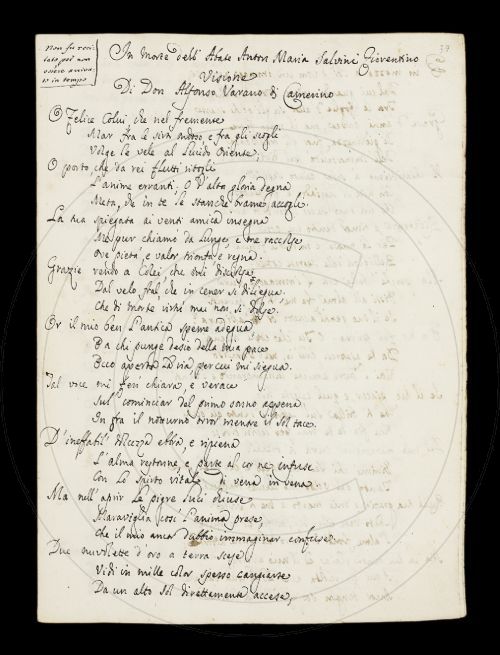 Non fu reci-
tato per non
essere arriva-
to in tempo
39
In morte dell' Abate Anton Maria Salvini Fiorentino
Visione
Di Don Alfonso Varano di Camerino
O Felice Colui che nel fremente
Mar fra le sirti andoso e fra gli scogli
Volge le vele al lucido Oriente;
O porto che da rei flutti ritogli
L'anime erranti, O d'alta gloria degna
Meta, che in te le stanche brame accogli.
La tua spiegata ai venti amica insegna
Me pur chiamò da lunge, e me raccolse
Ove pietà, e valor trionfa e regna.
Grazie rendo a Colei che mi disciolse
Dal velo fral, che in cener si dilegua.
Che di morte virtù mai non si dolse.
Or il mio ben l'antica speme adegua,
Da che punge desio della mia pace
Ecco aperta la via, per cui mi siegua.
Tal voce mi ferì chiara, e verace
Sul cominciar del primo sonno appena
In fra il notturno orror mentre il Sol tace.
D'ineffabil dolcezza ebra, e ripiena
L'alma restonne, e parte al cor ne infuse
Con lo spirto vitale di vena in vena.
Ma nell' aprir le pigre luci chiuse
Maraviglia così l'anima prese,
Che il mio ancor dubbio immaginar confuse.
Due nuvolette d'oro a terra scese
Vidi in mille color spesso cangiarse
Da un alto Sol direttamente accese,